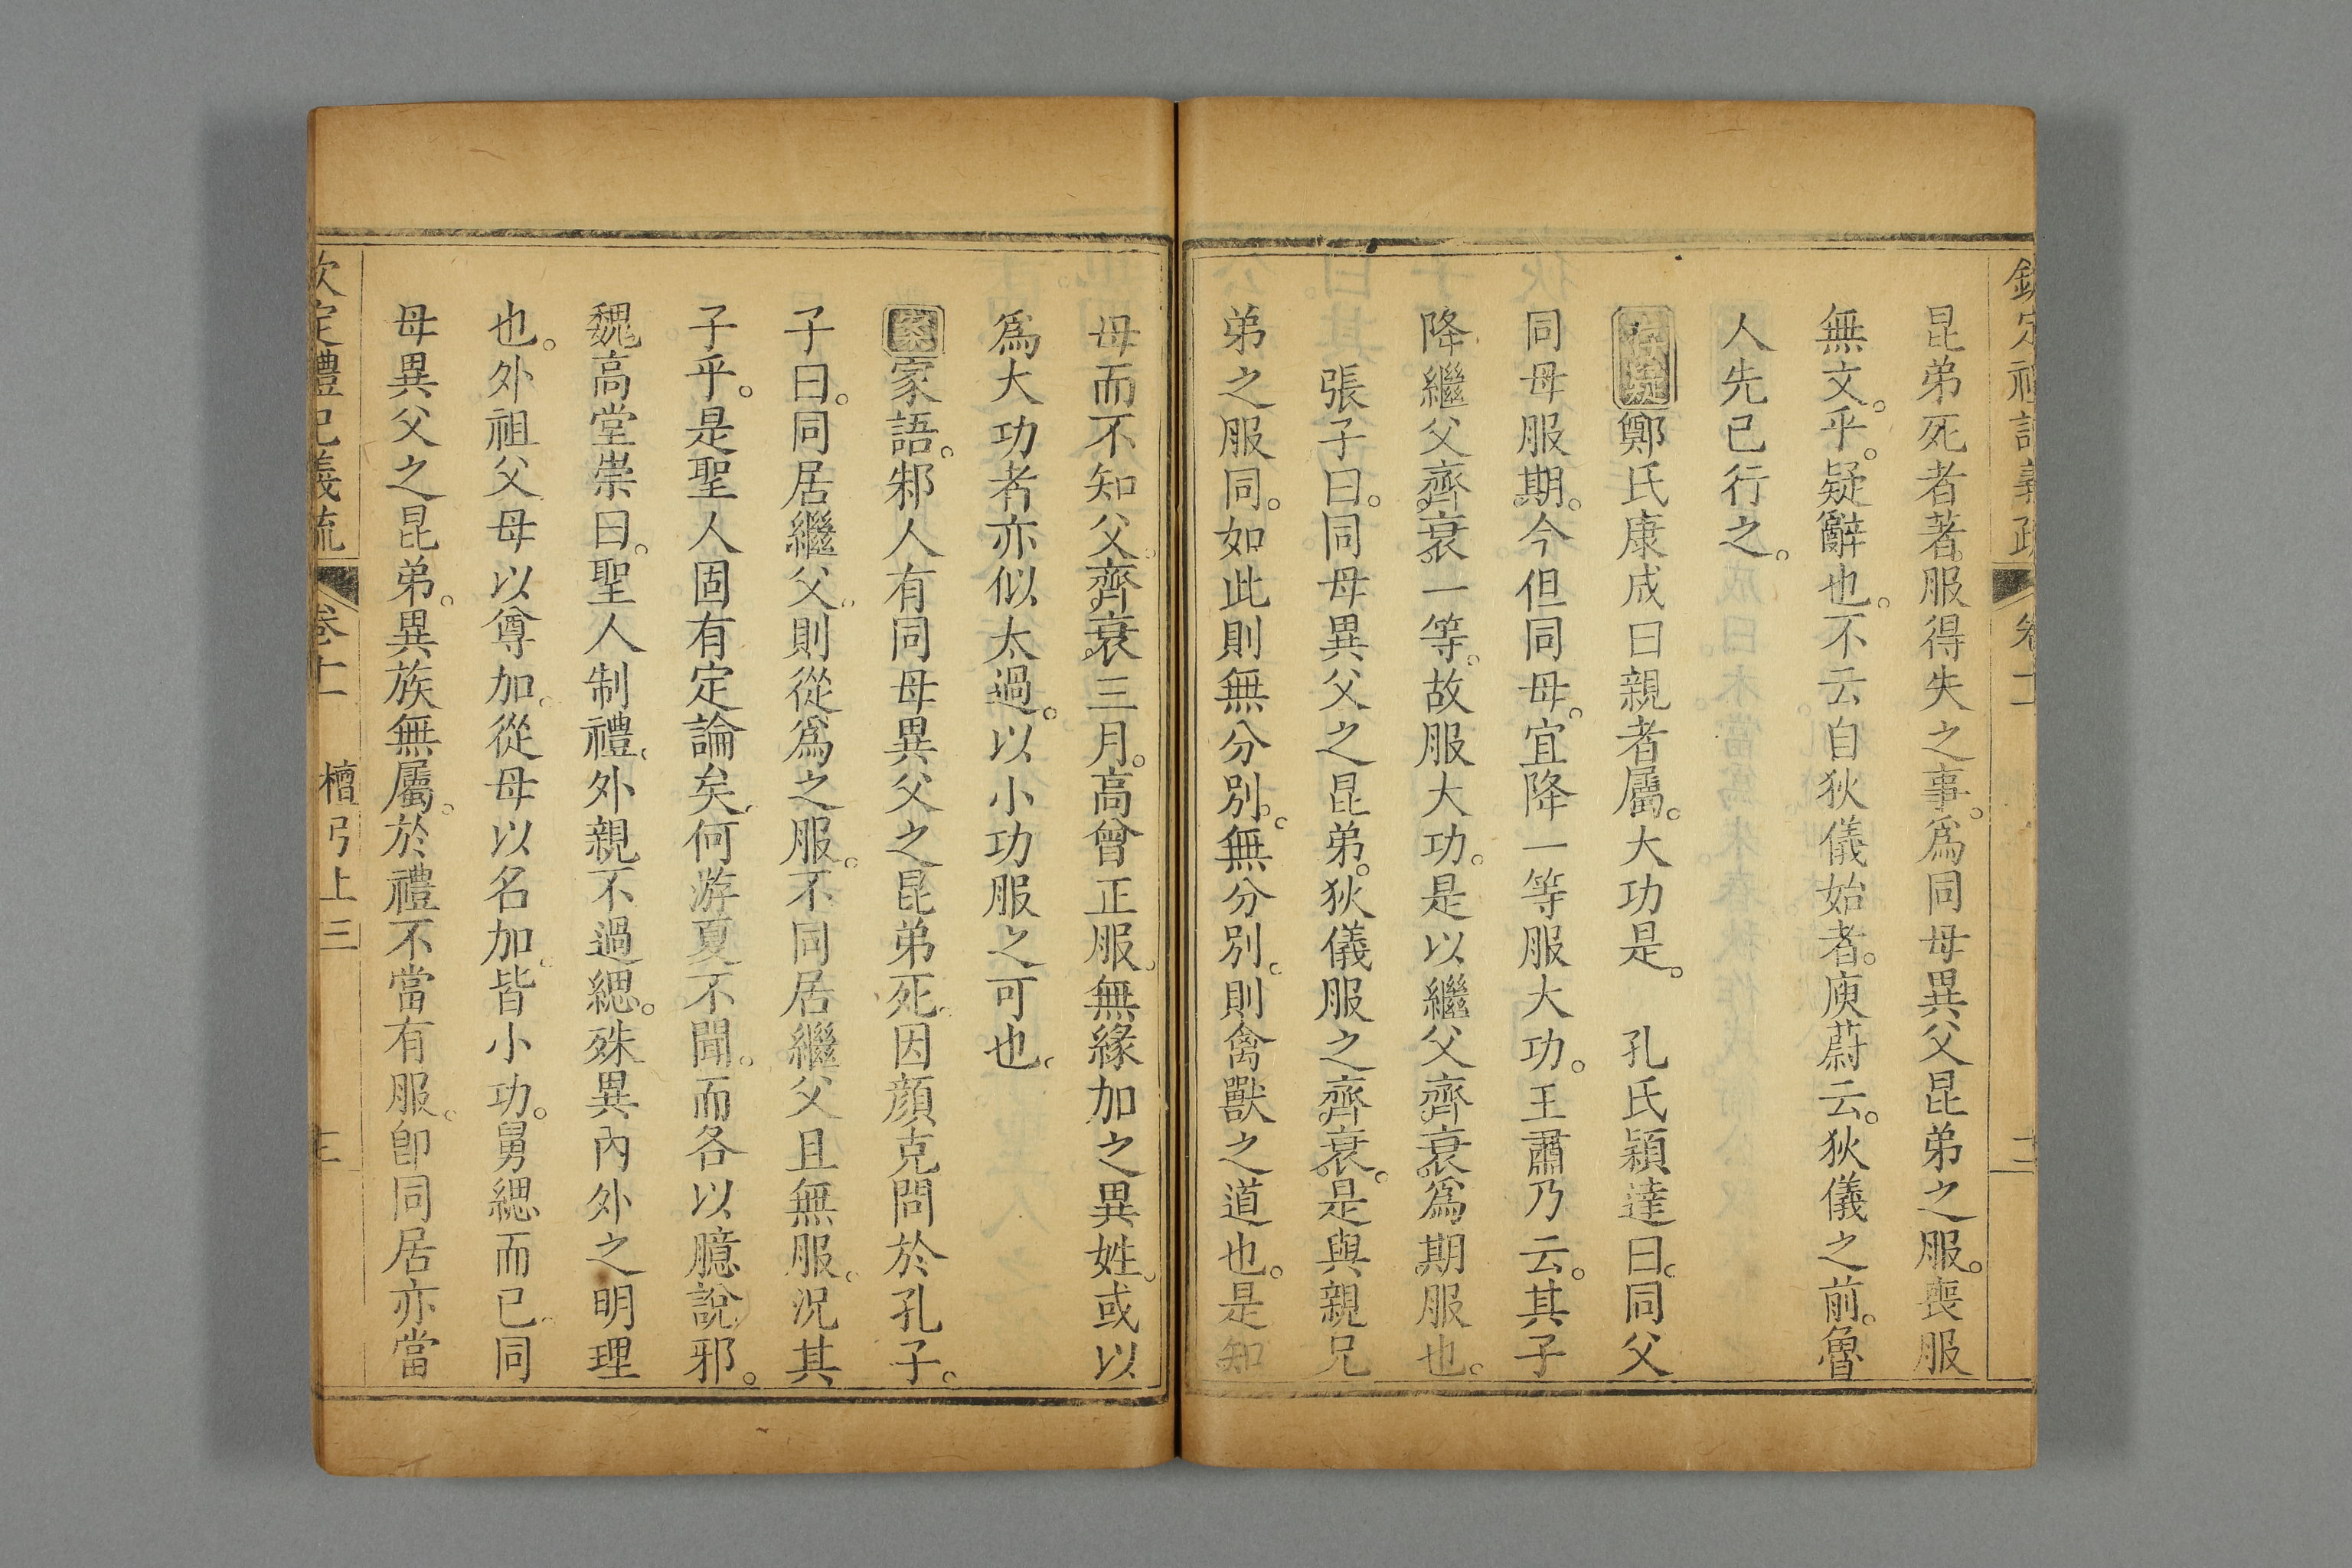 欽定禮記義疏 卷十一 二
昆弟死者著服得失之事。爲同母異父昆弟之服。喪服
無文。乎。疑辭也。不云自狄儀始者。庾蔚云。狄儀之前。魯
人先已行之。
存疑鄭氏康成曰親者屬。大功是。 孔氏穎達曰。同父
同母服期。今但同母。宜降一等服大功。王肅乃云。其子
降繼父齊衰一等。故服大功。是以繼父齊衰爲期服也。
張子曰。同母異父之昆弟。狄儀服之齊衰。是與親兄
弟之服同。如此則無分別。無分別。則禽獸之道也。是知
母而不知父。齊衰三月。高曾正服。無緣加之異姓。或以
爲大功者亦似太過。以小功服之可也。
案家語。邾人有同母異父之昆弟死。因顏克問於孔子。
子曰。同居繼父。則從爲之服。不同居繼父且無服。況其
子乎。是聖人固有定論矣。何游夏不聞。而各以臆說邪。
魏高堂崇曰。聖人制禮。外親不過緦。殊異內外之明理
也。外祖父母以尊加。從母以名加。皆小功。舅緦而已。同
母異父之昆弟。異族無屬。於禮不當有服。卽同居亦當
欽定禮記義疏 卷十一 檀弓上三 三